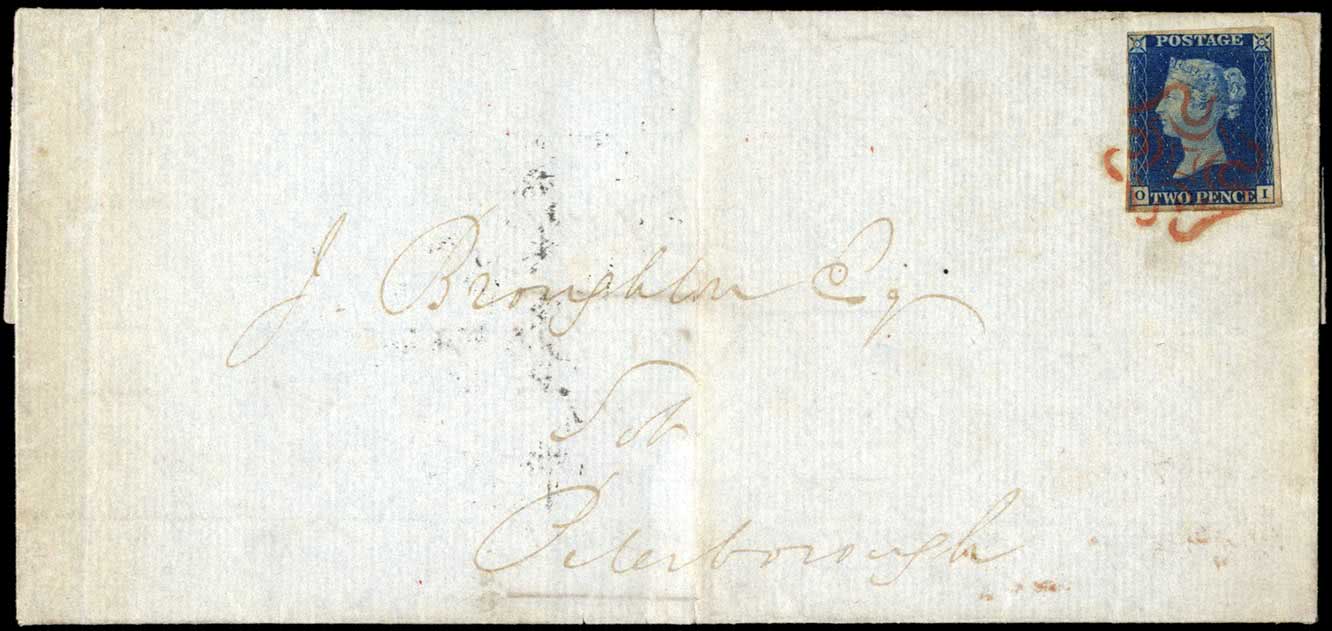 POSTAGE
O TWO PENCE I
J. Broughton Esq
Solr
Peterborough